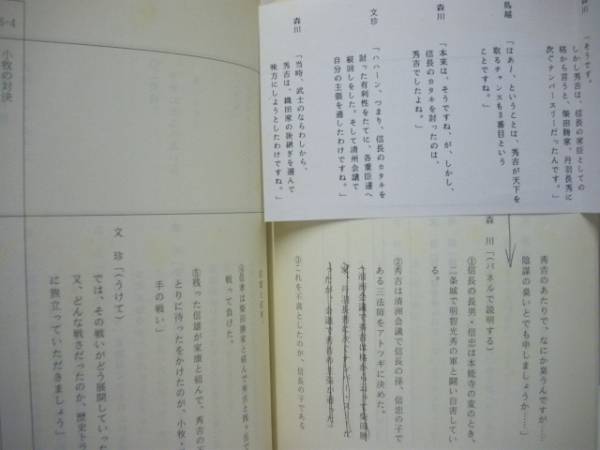 森川
「そうです。
しかし秀吉は、信長の家臣としての
格から言うと、柴田勝家、丹羽長秀に
次ぐナンバースリーだったんです。」
馬越
「はあー、ということは、秀吉が天下を
取るチャンスも３番目という
ことですね。」
森川
「本来は、そうですね、が、しかし、
信長のカタキを討ったのは、
秀吉でしたよね。」
文珍
「ハハーン、つまり、信長のカタキを
討った有利性をたてに、各重臣達へ
根回しをした。そして清洲会議で
自分の主張を通したわけですね。」
森川
「当時、武士のならわしから、
秀吉は、織田家の後継ぎを選んで
味方にしようとしたわけですね。」
秀吉のあたりで、なにか臭うんですが…
陰謀の臭いとでも申しましょうか…」
森川「（パネルで説明する）
①信長の長男・信忠は本能寺の変のとき、
二条城で明智光秀の軍と闘い自害してい
る。
②秀吉は清洲会議で信長の孫、信忠の子で
ある三法師をアトツギに決めた。
③これを不満としたのか、信長の子である
戦って負けた。
⑤残った信雄が家康と組んで、秀吉の
とりに待ったをかけたのが、小牧・
手の戦い」
文珍「（うけて）
では、その戦いがどう展開していった
又、どんな戦さだったのか、歴史トラ
に旅立っていただきましょう」
小牧の対決